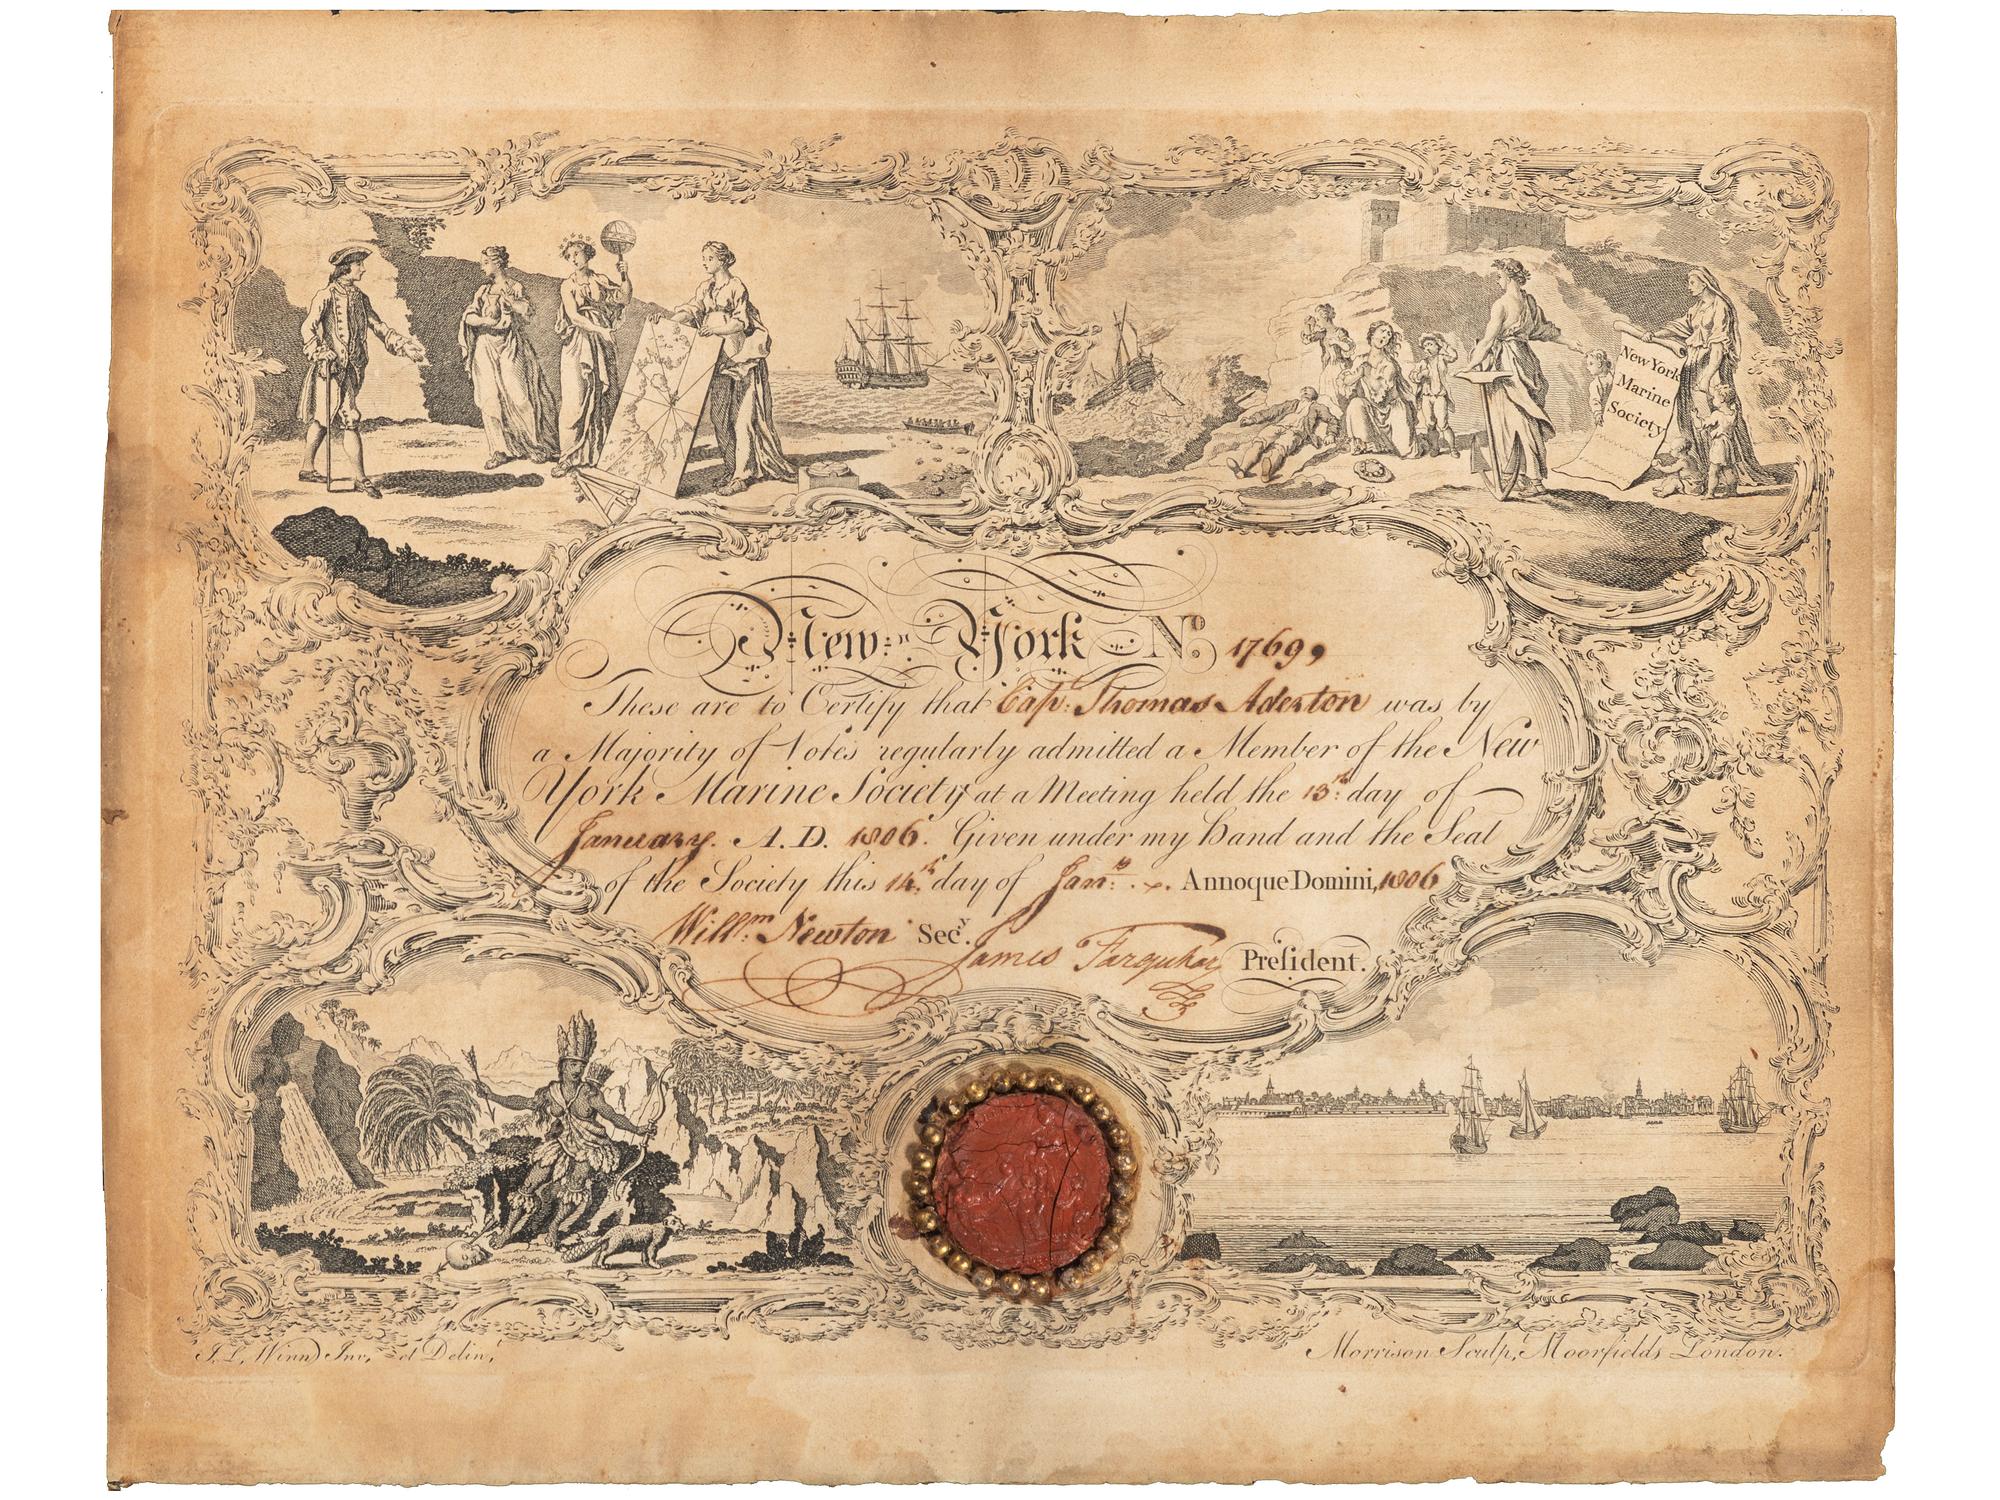 New York
Marine
Society
New-York No. 1769,
These are to Certify that Cap: Thomas Aderton was by
a Majority of Votes regularly admitted a Member of the New
York Marine Society at a Meeting held the 13th: day of
January. A.D. 1806. Given under my Hand and the Seal
of the Society this 14th: day of Jany: Annoque Domini, 1806
Willm: Newton Secy.
James Farquhar President.
J. L. Winn Inv, et Delin,
Morrison Sculp, Moorfields London.